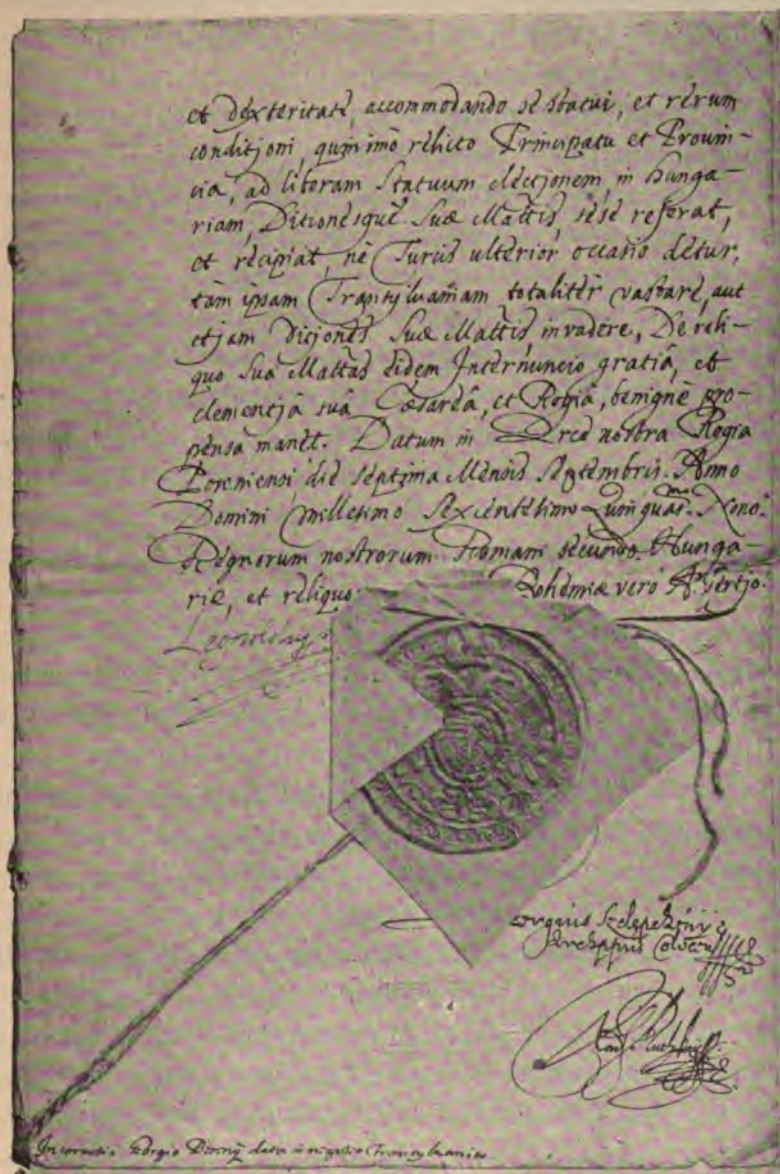 et dexteritati, accommodando se statui, et rerum
conditioni, quin imò relicto Principatu et Provin-
cia, ad liberam Statuum electjonem, in Hunga-
riam, Ditionesque Suæ Mattis, sese referat,
et recipiat, ne Turcis ulterior occasio detur,
tam ipsam Transylvaniam totaliter vastare, aut
etjam Dicjones Suæ Mattis invadere, De reli-
quo Sua Mattas eidem Internuncio gratiâ, et
clementjâ suâ Cæsareâ, et Regiâ, benignè pro-
pensa manet. Datum in Arce nostra Regia
die septima Mensis Septembris. Anno
Domini Millesimo Sexcentesimo Nono.
Regnorum nostrorum Romani secundo. Hunga-
riæ, et reliquo Bohemiæ verò Aº Tertjo.
Leopoldus
Georgius Szelepcheny
Archieppus Colocen
Georgio data in negotio Transylvanico